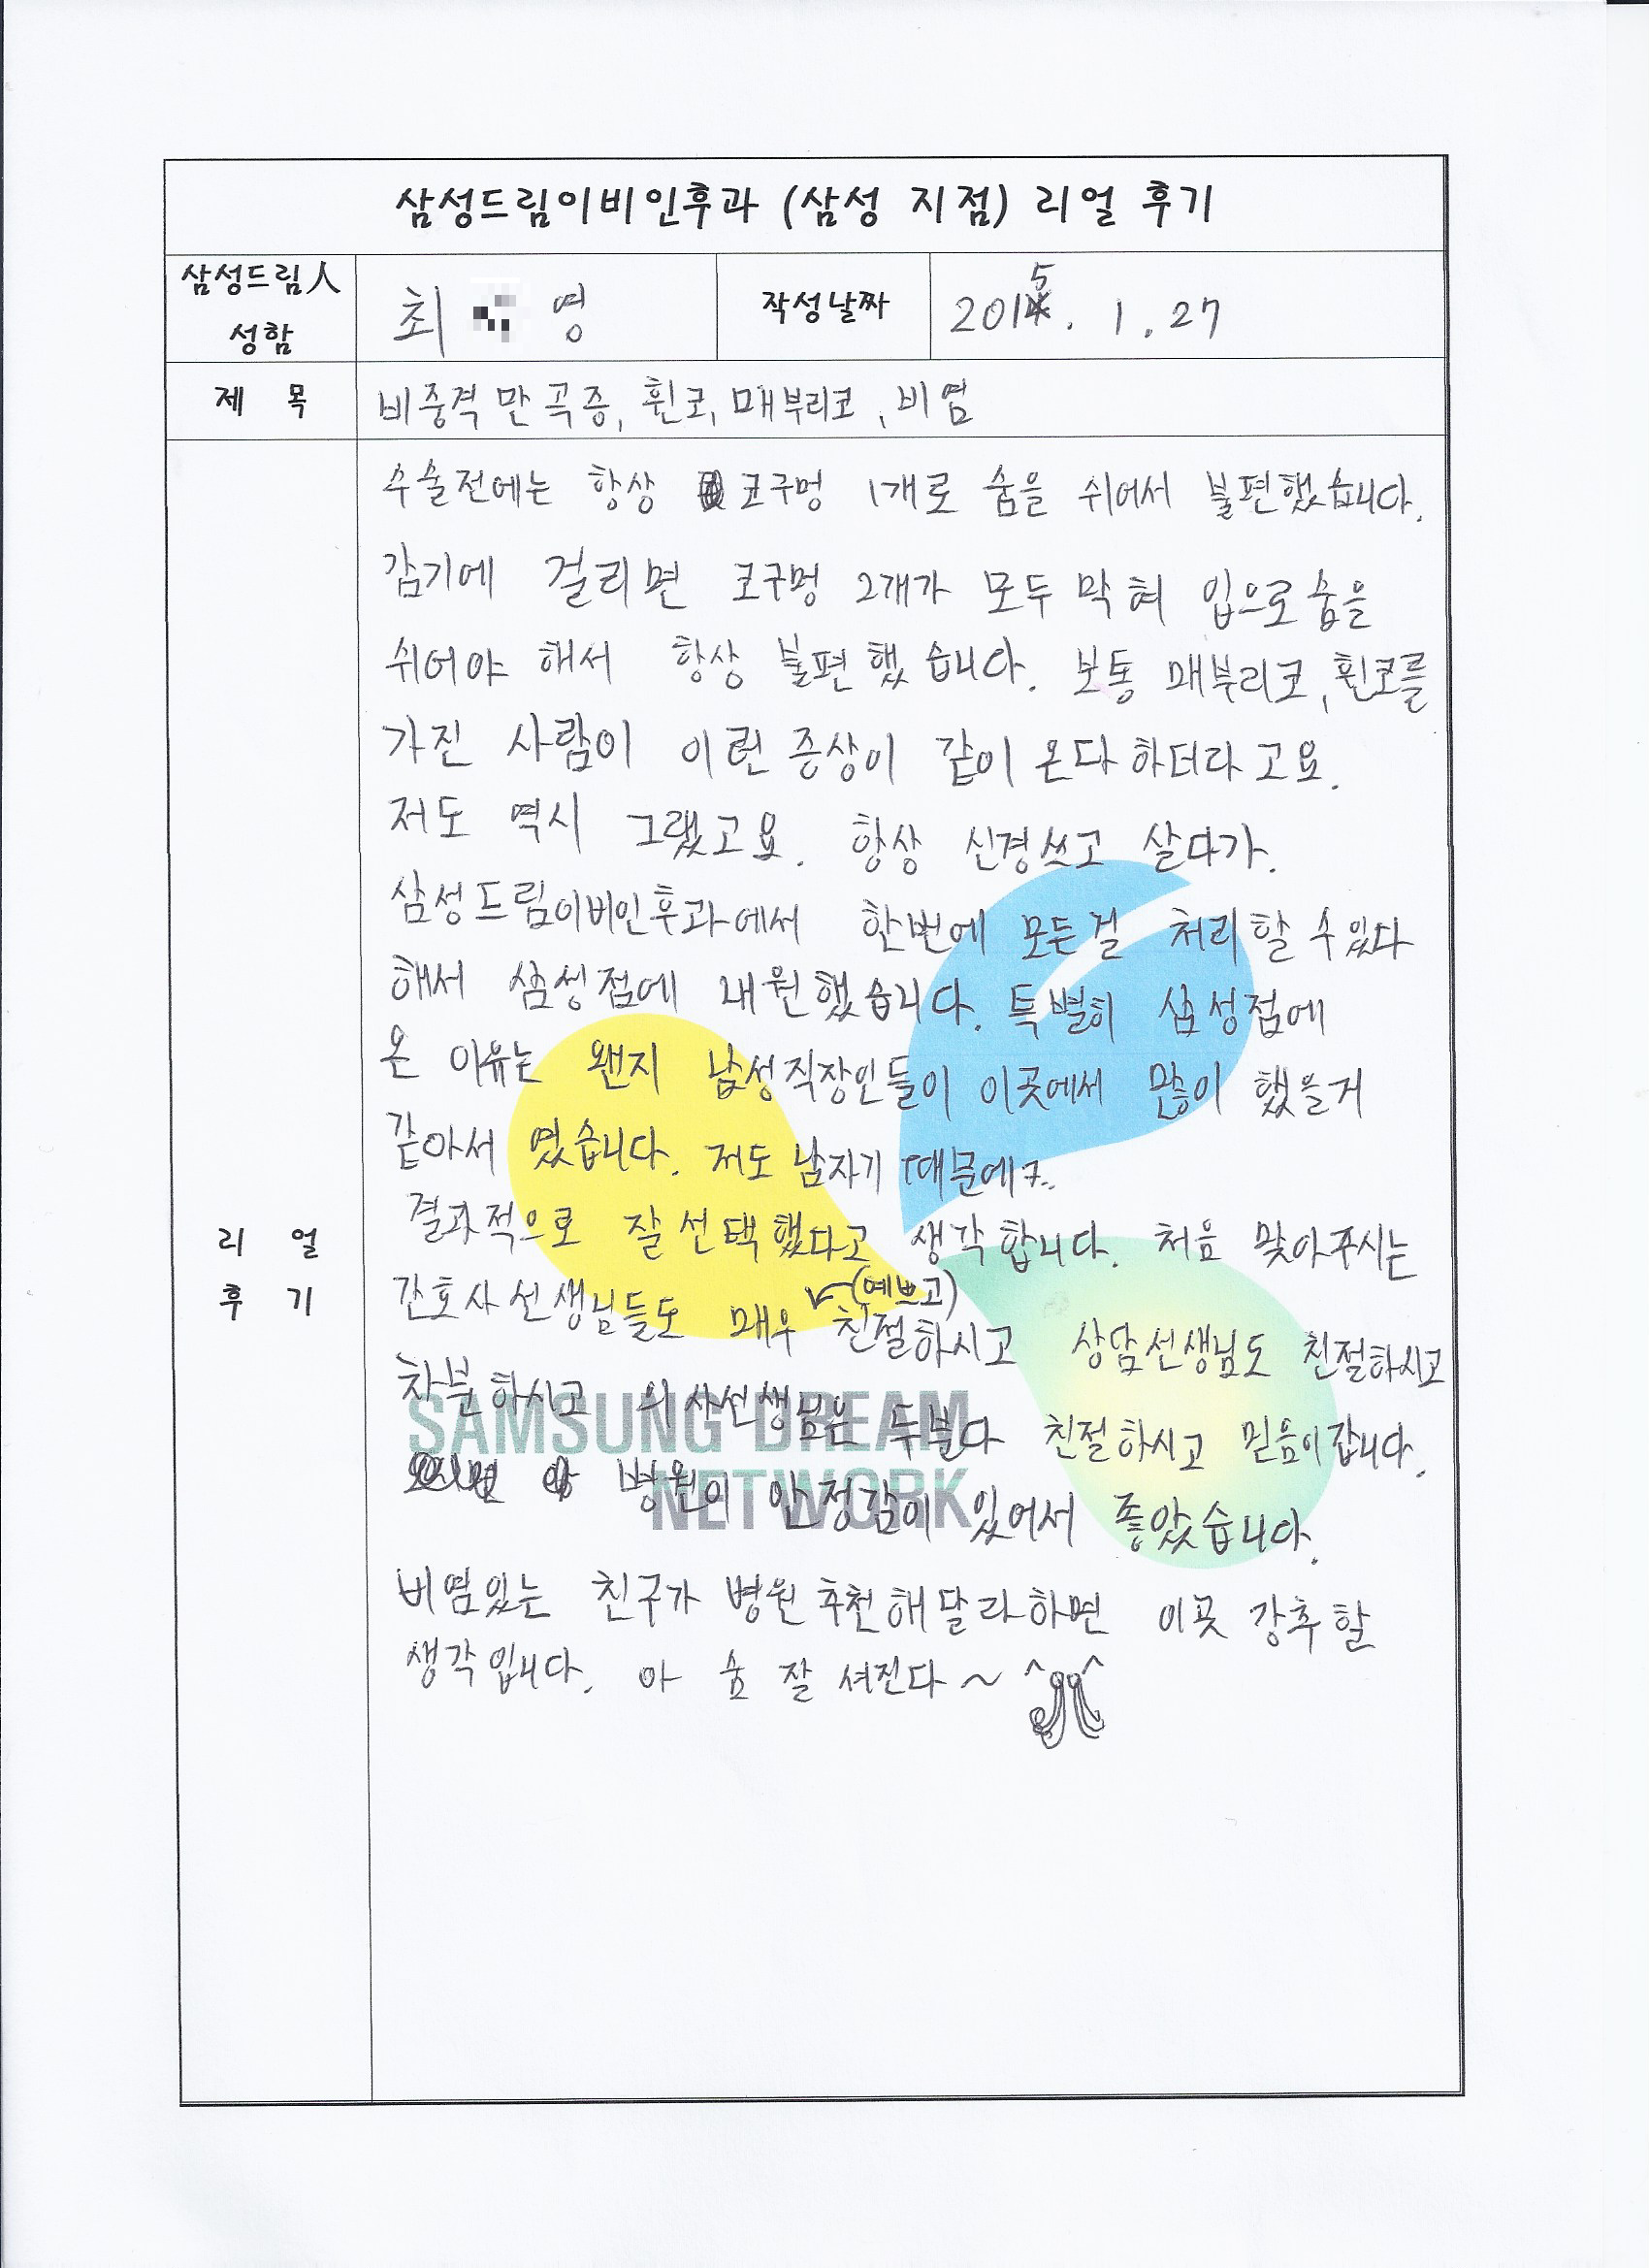 삼성드림이비인후과 (삼성 지점) 리얼 후기
삼성드림人 성함
최 영
작성날짜
2015. 1. 27
제 목
비중격 만곡증, 휜코, 매부리코, 비염
리 얼 후 기
수술전에는 항상 코구멍 1개로 숨을 쉬어서 불편했습니다.
감기에 걸리면 코구멍 2개가 모두 막혀 입으로 숨을
쉬어야 해서 항상 불편했습니다. 보통 매부리코, 휜코를
가진 사람이 이런 증상이 같이 온다 하더라고요.
저도 역시 그랬고요. 항상 신경쓰고 살다가.
삼성드림이비인후과에서 한번에 모든걸 처리할 수 있다
해서 삼성점에 내원했습니다. 특별히 삼성점에
온 이유는 왠지 남성직장인들이 이곳에서 많이 했을거
같아서 였습니다. 저도 남자기 때문에ㅋ..
결과적으로 잘 선택했다고 생각합니다. 처음 맞아주시는
간호사선생님들도 매우 (예쁘고) 친절하시고 상담선생님도 친절하시고
차분하시고 의사선생님은 두분다 친절하시고 믿음이갑니다.
병원이 안정감이 있어서 좋았습니다.
비염있는 친구가 병원 추천해달라하면 이곳 강추할
생각입니다. 아 숨 잘 셔진다~
SAMSUNG DREAM
NETWORK